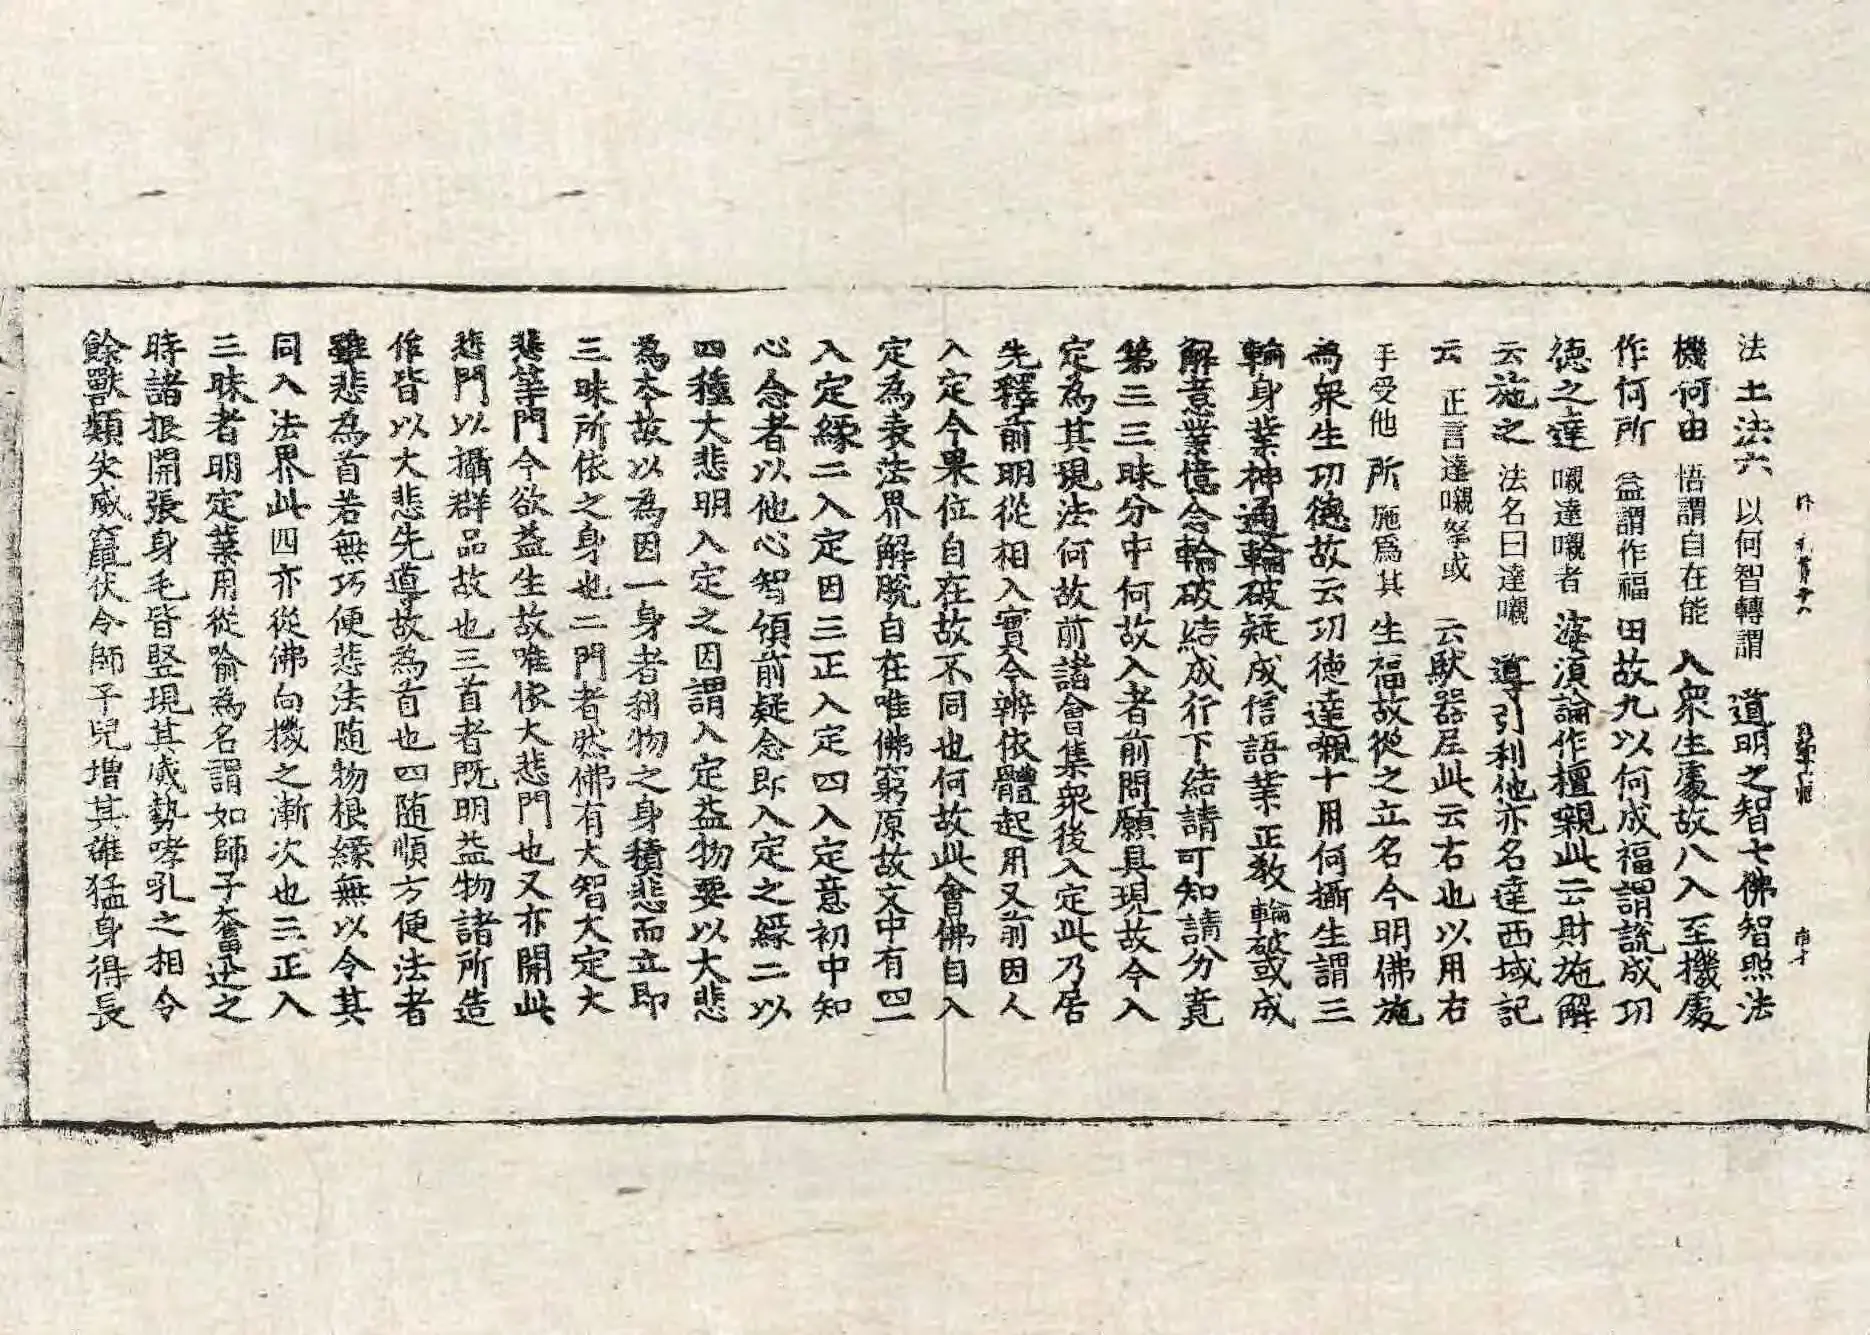 法土法六以何智轉謂道明之智七佛智照法
機何由悟謂自在能入衆生處故八入至機處
作何所益謂作福田故九以何成福謂說成功
德之達嚫達嚫者湥湏論作檀親此云財施解
云施之法名曰達嚫導引利他亦名達西域記
云正言達嚫拏或云馱器尼此云右也以用右
手受他所施爲其生福故從之立名今明佛施
為衆生功德故云功德達嚫十用何攝生謂三
輪身業神通輪破疑成信語業正教輪破或成
解意業憶念輪破結成行下結請可知請分竟
第三三昧分中何故入者前問願具現故今入
定為其現法何故前諸會集衆後入定此乃居
先釋前明從相入實今辨依體起用又前因人
入定今果位自在故不同也何故此會佛自入
定為表法界解脫自在唯佛窮原故文中有四一
入定緣二入定因三正入定四入定意初中知
心念者以他心智領前疑念即入定之緣二以
四種大悲明入定之因謂入定益物要以大悲
為本故以為因一身者利物之身積悲而立即
三昧所依之身也二門者然佛有大智大定大
悲等門今欲益生故唯依大悲門也又亦開此
悲門以攝群品故也三首者既明益物諸所造
作皆以大悲先導故為首也四随順方便法者
雖悲為首若無巧便悲法随物根緣無以令其
同入法界此四亦從佛向機之漸次也三正入
三昧者明定業用從喻為名謂如師子奮迅之
時諸根開張身毛皆竪現其威勢哮吼之相令
餘獸類失威竄伏令師子兒增其雄猛身得長